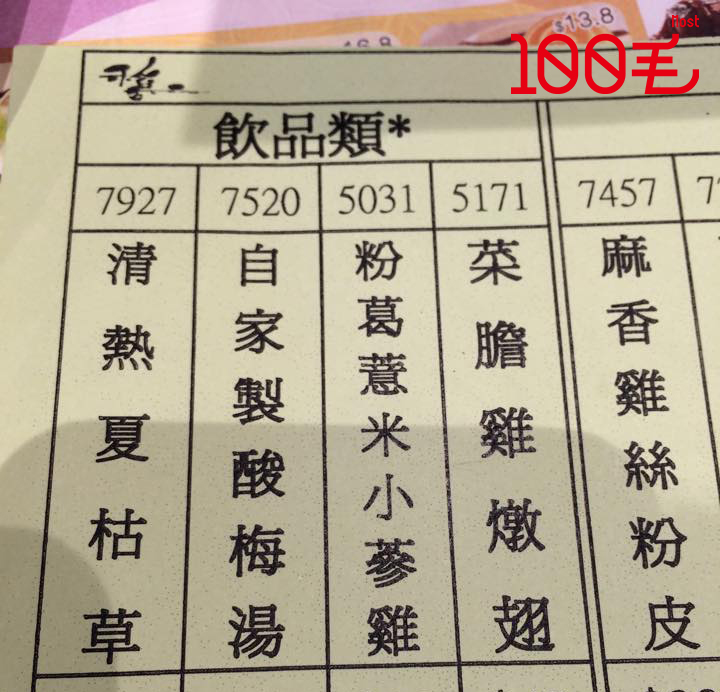 $13.8
100毛
Post
飲品類*
7927
清熱夏枯草
7520
自家製酸梅湯
5031
粉葛薏米小蔘雞
5171
菜膽雞燉翅
7457
麻香雞絲粉皮